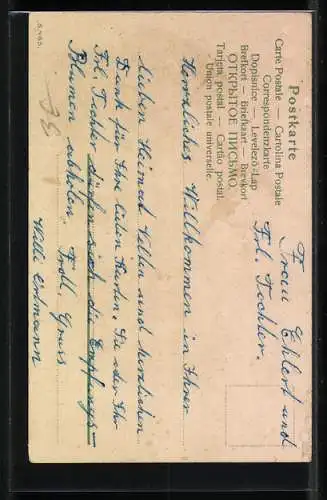 Postkarte
Carte Postale — Cartolina Postale
Correspondenzkarte
Dopisnice — Levelező-Lap
Brefkort — Briefkaart — Brevkort
ОТКРЫТОЕ ПИСЬМО.
Tarjeta postal — Cartão postal.
Union postale universelle.
Frau Ehlert und
Frl. Tochter.
Herzliches Willkommen in Ihrer
lieben Heimat und herzlichen
Dank für Ihre lieben Karten. Sie oder Ihr
Frl. Tochter dürfen sich die Empfangs-
Blumen abholen. Frdl. Gruss
Willi Erdmann